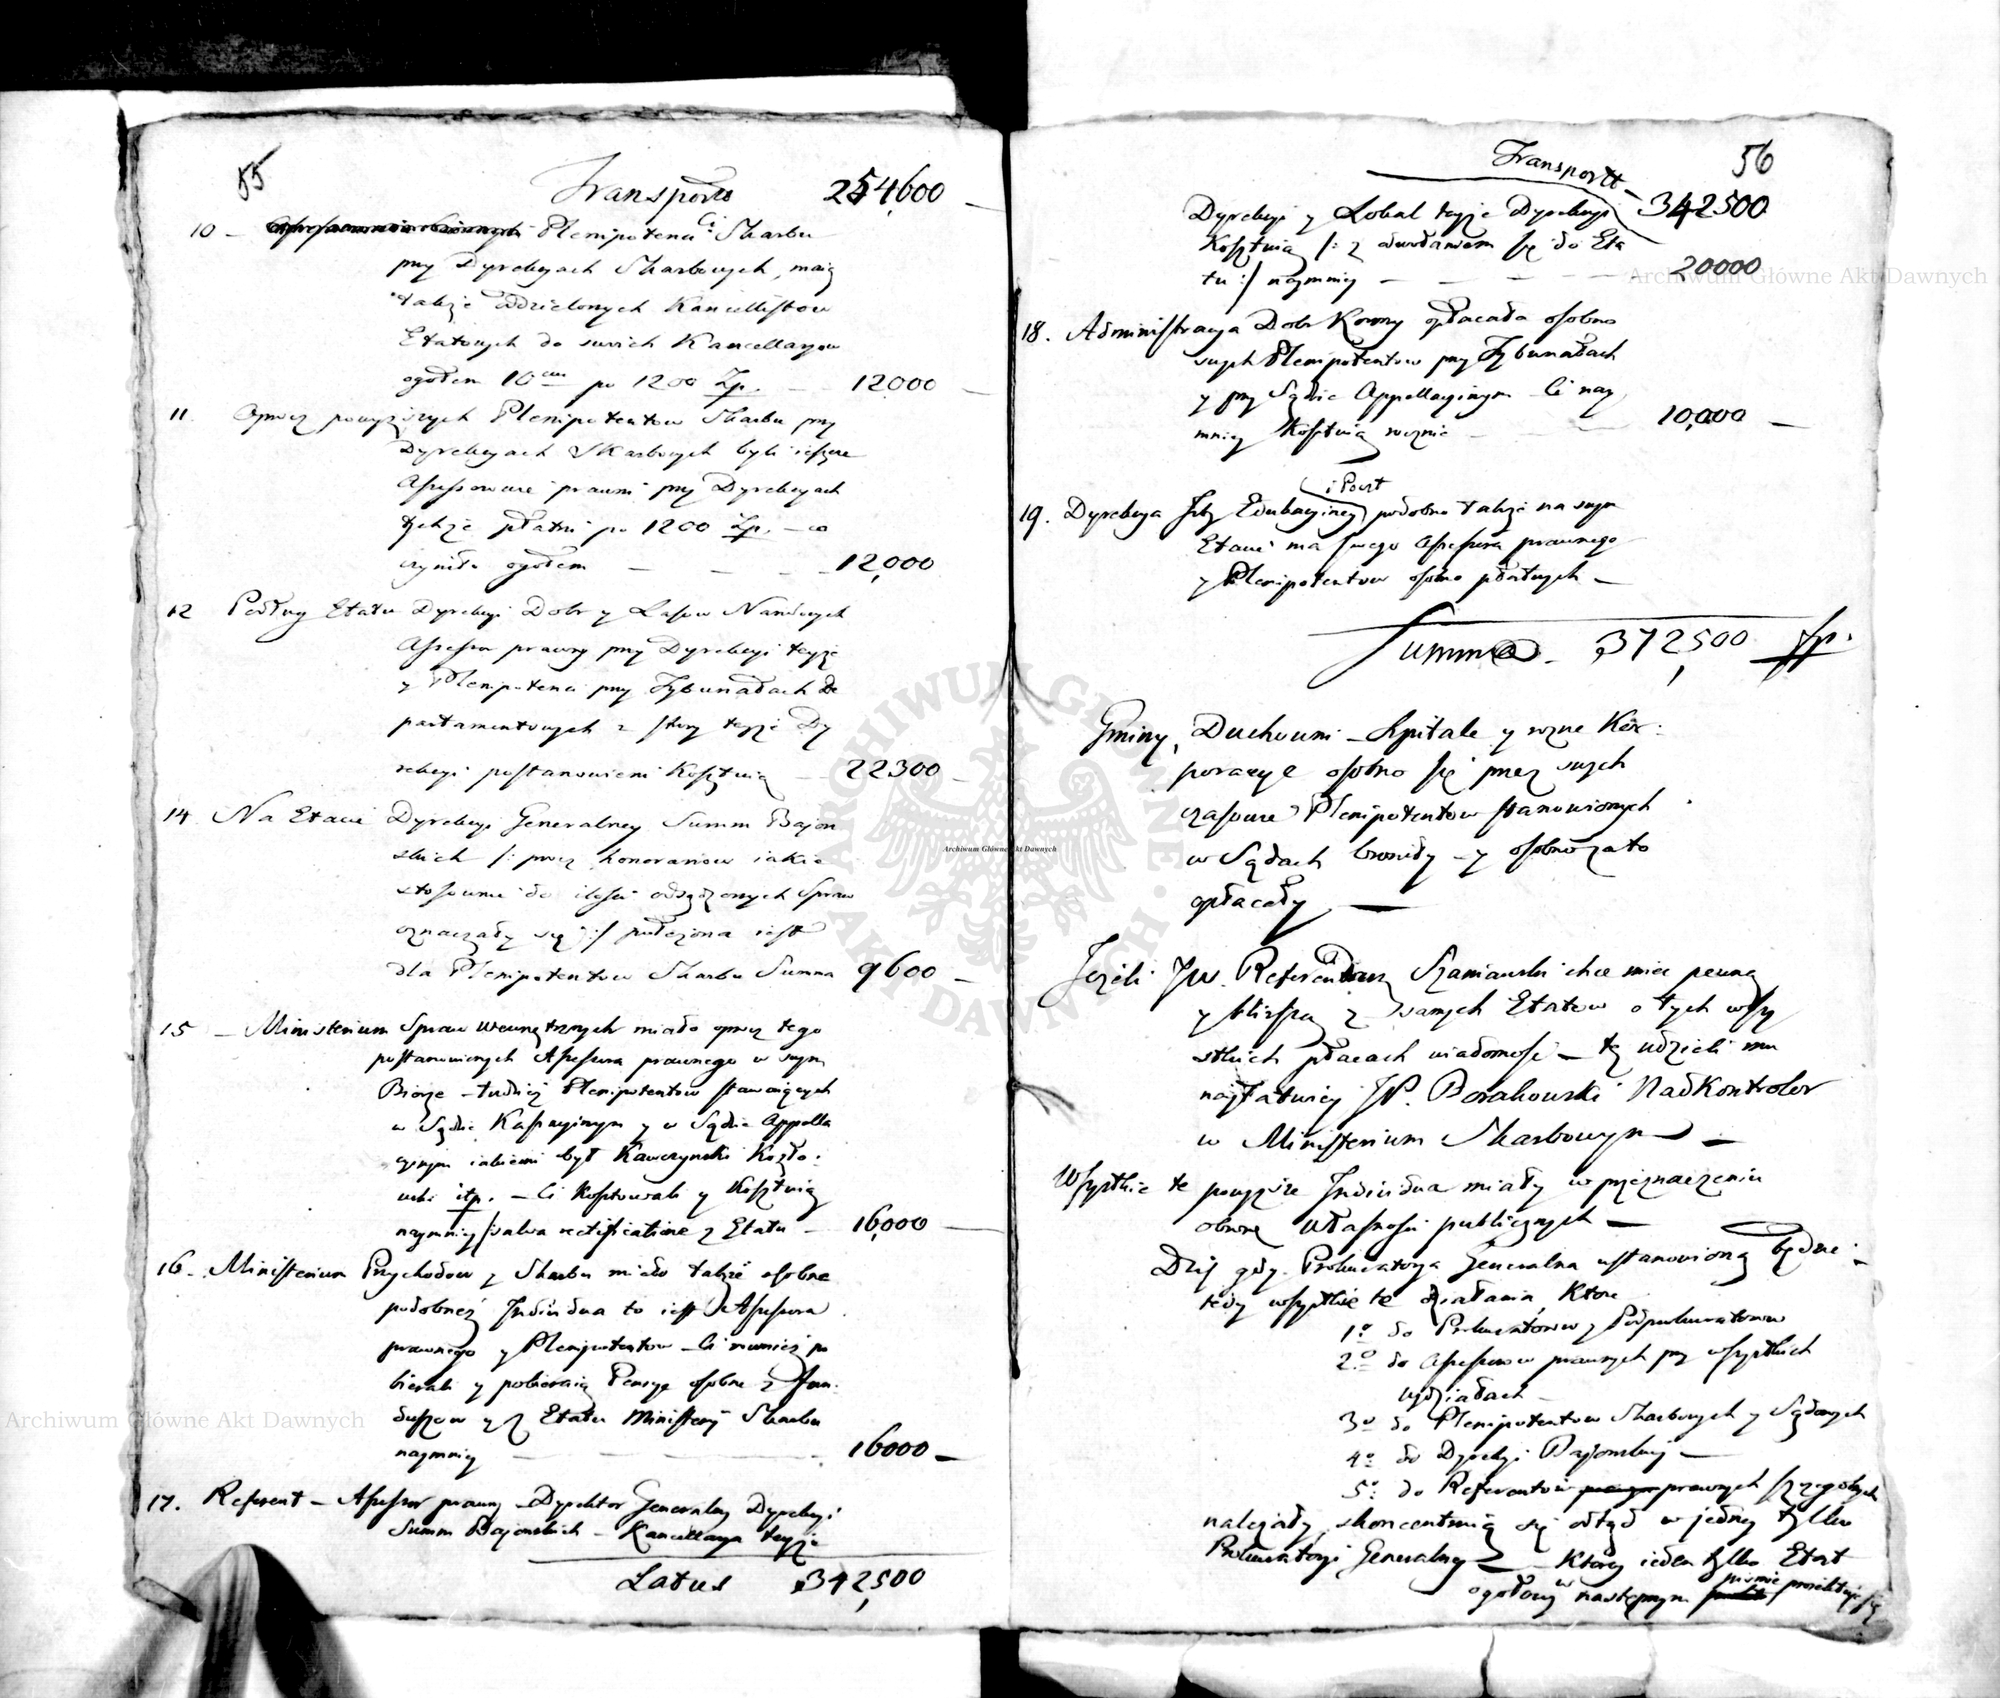 55
Transport 254,600 —
10 — Plenipotenci Skarbu
przy Dyrekcyach Skarbowych, maią
także udzielonych Kancellistow
Etatowych do swoich Kancellaryow
ogołem 10 po 1200 Zp. — 12000 —
11. Oprocz powyższych Plenipotentow Skarbu przy
Dyrekcyach Skarbowych byli ieszcze
Assessorowie prawni przy Dyrekcyach
także płatni po 1200 Zp. — co
czyniło ogołem — — — 12,000
12 Podług Etatu Dyrekcyi Dobr y Lasow Narodowych
Assessor prawny przy Dyrekcyi teyże
y Plenipotenci przy Trybunałach De
partamentowych z strony teyże Dy
rekcyi postanowieni kosztuią — 22300 —
14 Na Etacie Dyrekcyi Generalney Summ Bajon
skich /: procz honorariow iakie
stosownie do ilości osądzonych Spraw
oznaczały się :/ położona iest
dla Plenipotentow Skarbu Summa 9600 —
15 — Ministerium Spraw Wewnętrznych miało oprocz tego
postanowionych Assessora prawnego w swym
Biorze — tudzież Plenipotentow stawaiących
w Sądzie Kassacyinym y w Sądzie Appella
cyinym iakiemi był Kawczynski Kozło:
wski itp. — Ci kosztowali y kosztuią
naymniey /salva rectificatione z Etatu — 16,000 —
16 — Ministerium Przychodow y Skarbu miało także osobne
podobneż Individua to iest Assessora
prawnego y Plenipotentow — Ci rownież po
bierali y pobieraią Pensye osobne z Fun:
duszow y z Etatu Ministerii Skarbu
naymniey — — — 16000 —
17. Referent — Assessor prawny — Dyrektor Generalny Dyrekcyi
Summ Bajonskich — Kancellarya teyże
Latus 342,500
56
Transportt — 342500
Dyrekcyi y Lokal teyże Dyrekcyi
kosztuią /: z odwołaniem się do Eta
tu :/ naymniey — — — — 20000
18. Administracya Dobr Korony opłacała osobno
swych Plenipotentow przy Trybunałach
y przy Sądzie Appellacyinym Ci nay
mniey kosztuią rocznie — — 10,000 —
i Poczt
19. Dyrekcya Izby Edukacyiney podobno także na swym
Etacie ma swego Assessora prawnego
y Plenipotentow osobno płatnych —
Summa — 372,500 Zp.
Gminy, Duchowni — Szpitale y rożne Kor:
poracye osobno się przez swych
czasowie Plenipotentow stanowionych
w Sądach broniły — y osobno za to
opłacały —
Jeżeli JW. Referendarz Szaniawski chce mieć pewną
y bliższą z samych Etatow o tych wszy
stkich płacach wiadomość — tę udzieli mu
nayłatwiey JP. Borakowski NadKontroler
w Ministerium Skarbowym —
Wszystkie te powyższe Individua miały w przeznaczeniu
obronę własności publicznych —
Dziś gdy Prokuratorya Generalna ustanowioną będzie —
tedy wszystkie te działania, ktore
1º do Prokuratorow y Podprokuratorow
2º do Assessorow prawnych przy wszystkich
wydziałach —
3º do Plenipotentow Skarbowych y Sądowych
4º do Dyrekcyi Bajonskiey —
5º do Referentow prawnych szczegolnych
należały, skoncentruią się odtąd w jedney tylko
Prokuratoryi Generalney — ktorey ieden tylko Etat
ogołowy w następnym pismie proiektuje się